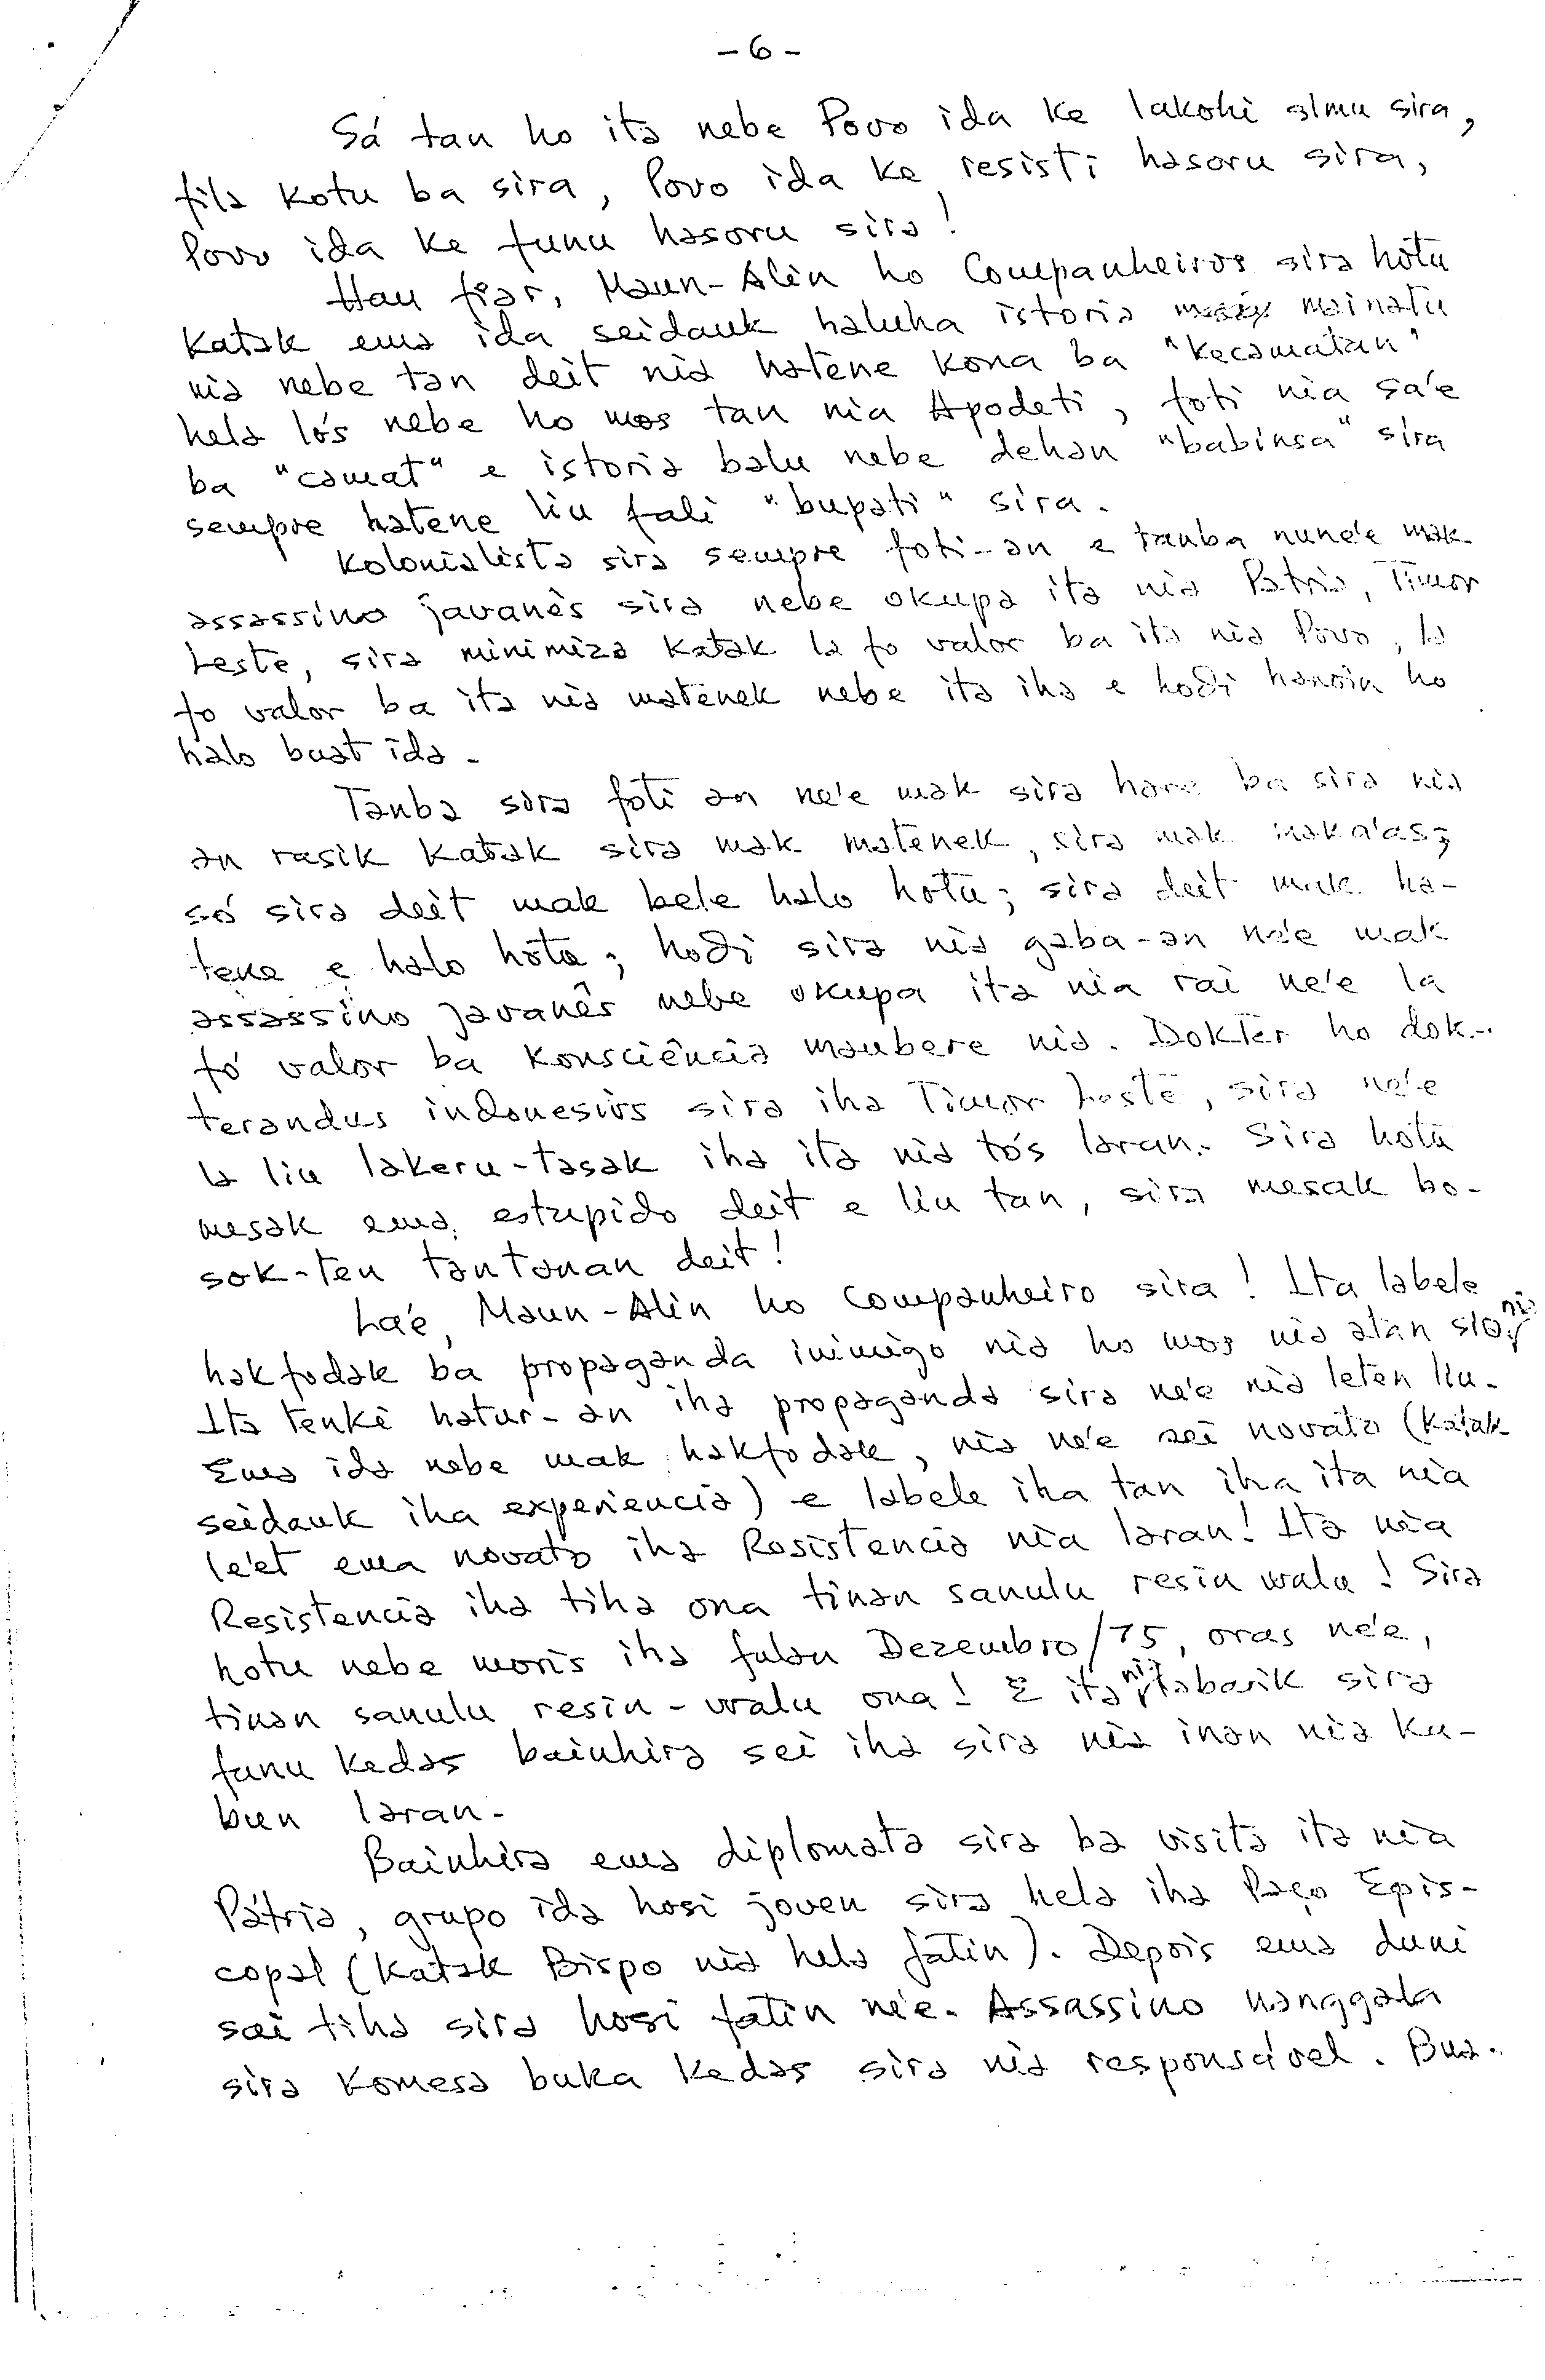 - 6 -
Sá tan ho ita nebe Povo ida ke lakohi simu sira,
fila kotu ba sira, Povo ida ke resisti hasoru sira,
Povo ida ke funu hasoru sira!
Hau fiar, Maun-Alin ho Companheiros sira hotu
katak ema ida seidauk haluha istoria mainatu
nia nebe tan deit nia hatene kona ba "kecamatan"
hela lós nebe ho mos tan nia Apodeti, foti nia sa'e
ba "camat" e istoria balu nebe dehan "babinsa" sira
sempre hatene liu fali "bupati" sira.
Kolonialista sira sempre foti-an e tanba nune'e mak
assassino javanês sira nebe okupa ita nia Patria, Timor
Leste, sira minimiza katak la fo valor ba ita nia Povo, la
fo valor ba ita nia matenek nebe ita iha e hodi hanoin ho
halo buat ida.
Tanba sira foti an ne'e mak sira hare ba sira nia
an rasik katak sira mak matenek, sira mak maka'as;
só sira deit mak bele halo hotu; sira deit mak ha-
tene e halo hotu; hodi sira nia gaba-an ne'e mak
assassino javanês nebe okupa ita nia rai ne'e la
fó valor ba konsciência maubere nia. Dokter ho dok-
terandus indonesios sira iha Timor Leste, sira ne'e
la liu lakeru-tasak iha ita nia tós laran. Sira hotu
mesak ema estupido deit e liu tan, sira mesak bo-
sok-ten tantonan deit!
La'e, Maun-Alin ho Companheiro sira! Ita labele
hakfodak ba propaganda inimigo nia ho mos nia atan sira nia.
Ita tenke hatur-an iha propaganda sira ne'e nia leten liu.
Ema ida nebe mak hakfodak, nia ne'e sei novato (katak
seidauk iha experiencia) e labele iha tan iha ita nia
le'et ema novato iha Resistencia nia laran! Ita nia
Resistencia iha tiha ona tinan sanulu resin walu! Sira
hotu nebe moris iha fulan Dezembro/75, oras ne'e,
tinan sanulu resin-walu ona! E ita nia labarik sira
funu kedas bainhira sei iha sira nia inan nia ka-
bun laran.
Bainhira ema diplomata sira ba visita ita nia
Pátria, grupo ida hosi joven sira hela iha Paço Epis-
copal (katak Bispo nia hela fatin). Depois ema duni
sai tiha sira hosi fatin ne'e. Assassino nanggala
sira komesa buka kedas sira nia responsável. Bua-